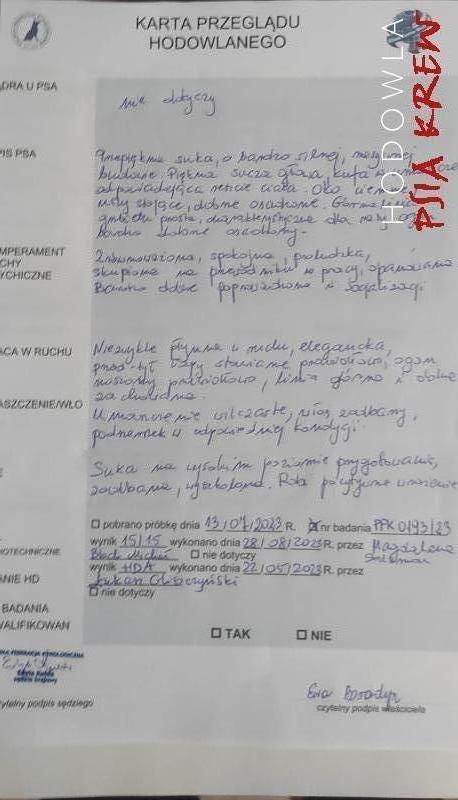 KARTA PRZEGLĄDU
HODOWLANEGO
HODOWLA
PSIA KREW
ĄDRA U PSA
nie dotyczy
PIS PSA
suka, o bardzo silnej, masywnej
budowie. Piękna sucza głowa, kufa
odpowiadająca reszcie ciała. Oko
uszy stojące, dobrze osadzone. Górna linia
grzbietu prosta, charakterystyczna dla rasy,
bardzo dobrze osadzony.
MPERAMENT
CHY
YCHICZNE
Zrównoważona, spokojna, posłuszna,
skupiona na przewodniku w pracy, opanowana
Bardzo dobrze poprowadzona w socjalizacji
ACA W RUCHU
Niezwykle płynna w ruchu, elegancka,
przód-tył łapy stawiane prawidłowo, ogon
noszony prawidłowo, linia górna i dolna
zachowana.
ASZCZENIE/WŁO
Umaszczenie wilczaste, włos zadbany,
podszerstek w odpowiedniej kondycji.
Suka na wysokim poziomie przygotowania,
zadbana, wyszkolona. Robi pozytywne wrażenie
☐ pobrano próbkę dnia 13/07/2023 R. ☒ nr badania PPK 0193/23
wynik 15/15 wykonano dnia 28/08/2023 R. przez Magdalena
NOTECHNICZNE
☐ nie dotyczy
ANIE HD
wynik HDA wykonano dnia 22/05/2023 R. przez
Łukasz
☐ nie dotyczy
BADANIA
WALIFIKOWAN
☐ TAK ☐ NIE
FEDERACJA KYNOLOGICZNA
Edyta
sędzia krajowy
zytelny podpis sędziego
Ewa
czytelny podpis właściciela